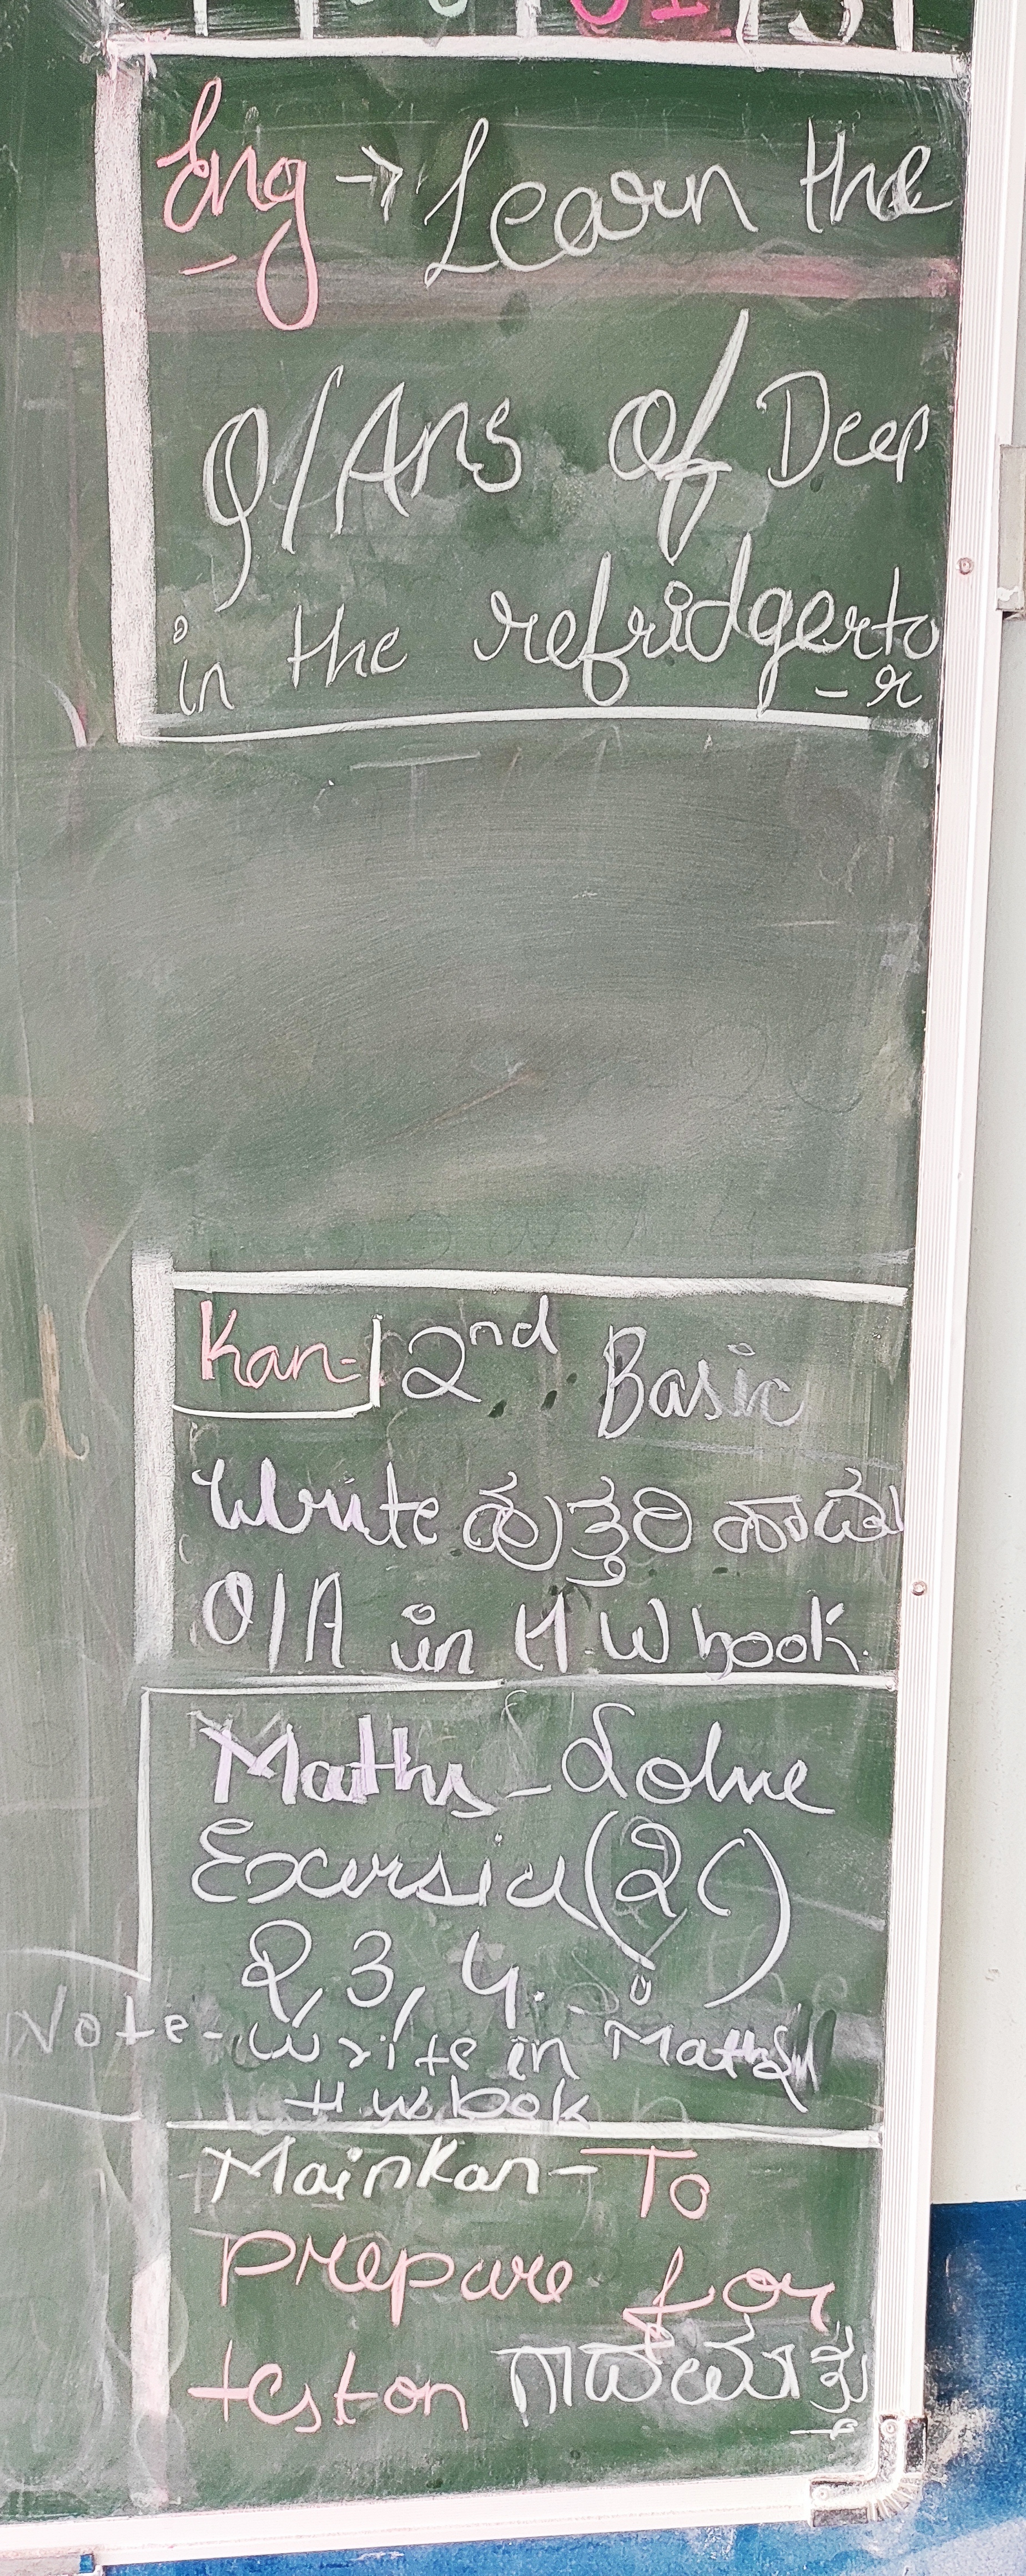 Eng → Learn the
Q/Ans of Deep
in the refridgerto
- r
Kan- 2nd Basic
Write ಹುತ್ತರಿ ಹಾಡು
Q/A in H.W book.
Maths - Solve
Excersice (2C)
2, 3, 4.
Note - write in Maths
H.w book
Main Kan - To
prepare for
test on ಗಾದೆಮಾತು